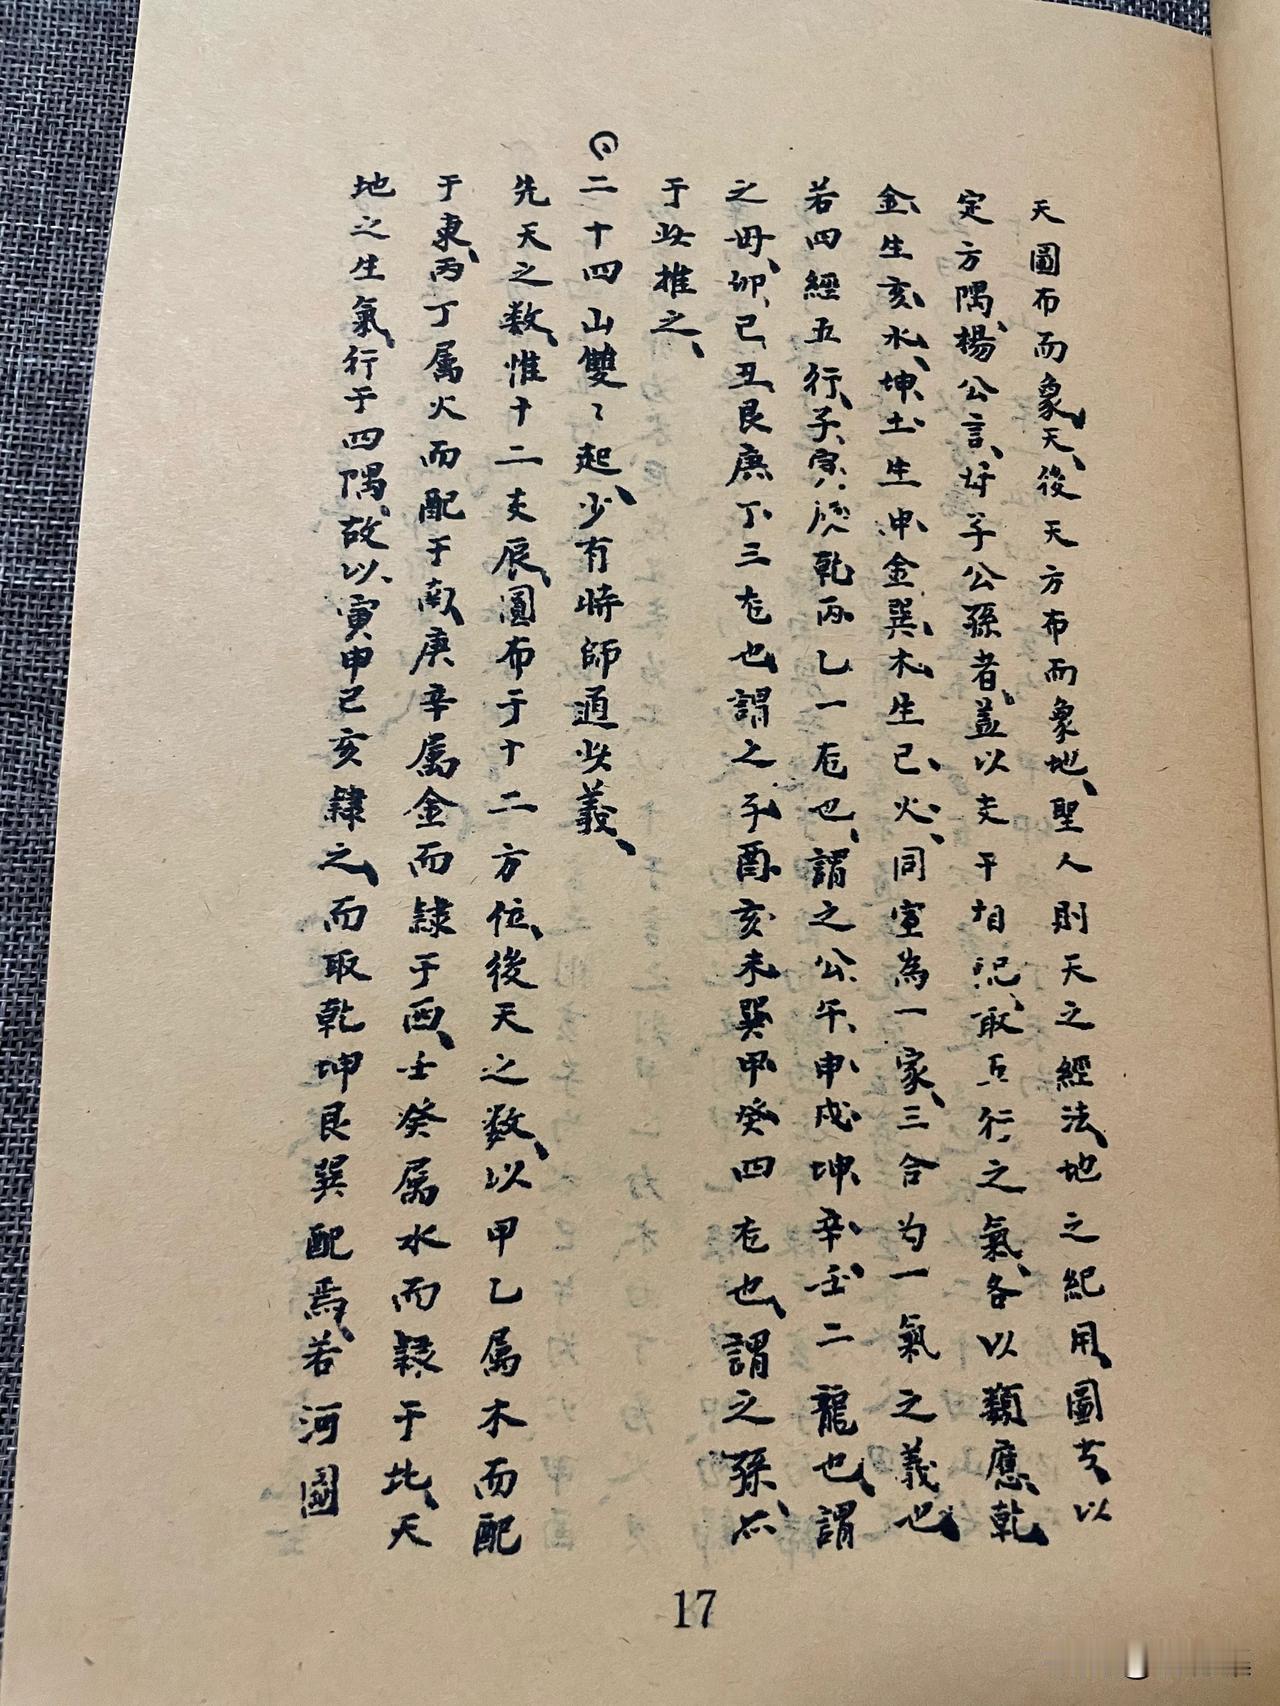 天圖布而象天、後天方布而象地、聖人則天之經法、地之紀用、圖以
定方隅、楊公言、子公孫者、蓋以支干相配、取五行之氣、各以類應、乾
金、生亥、水、坤、土、生申、金、巽、木、生巳、火、同室為一家、三合為一氣之義也、
若四經五行、子、寅、辰、乾、丙、乙一龙也、謂之公、午、申、戌、坤、辛、壬、二龍也、謂
之母、卯、巳、丑、艮、庚、丁、三龙也、謂之子、酉、亥、未、巽、甲、癸、四龙也、謂之孫、
于此推之、
二十四山雙〻起、少有時師通此義、
先天之数、惟十二支辰、圓布于十二方位、後天之数、以甲乙属木而配
于東、丙丁属火而配于南、庚辛属金而隷于西、壬癸属水而隷于北、天
地之生氣、行于四隅、故以、寅申巳亥隷之、而取乾坤艮巽配焉、若河圖
17